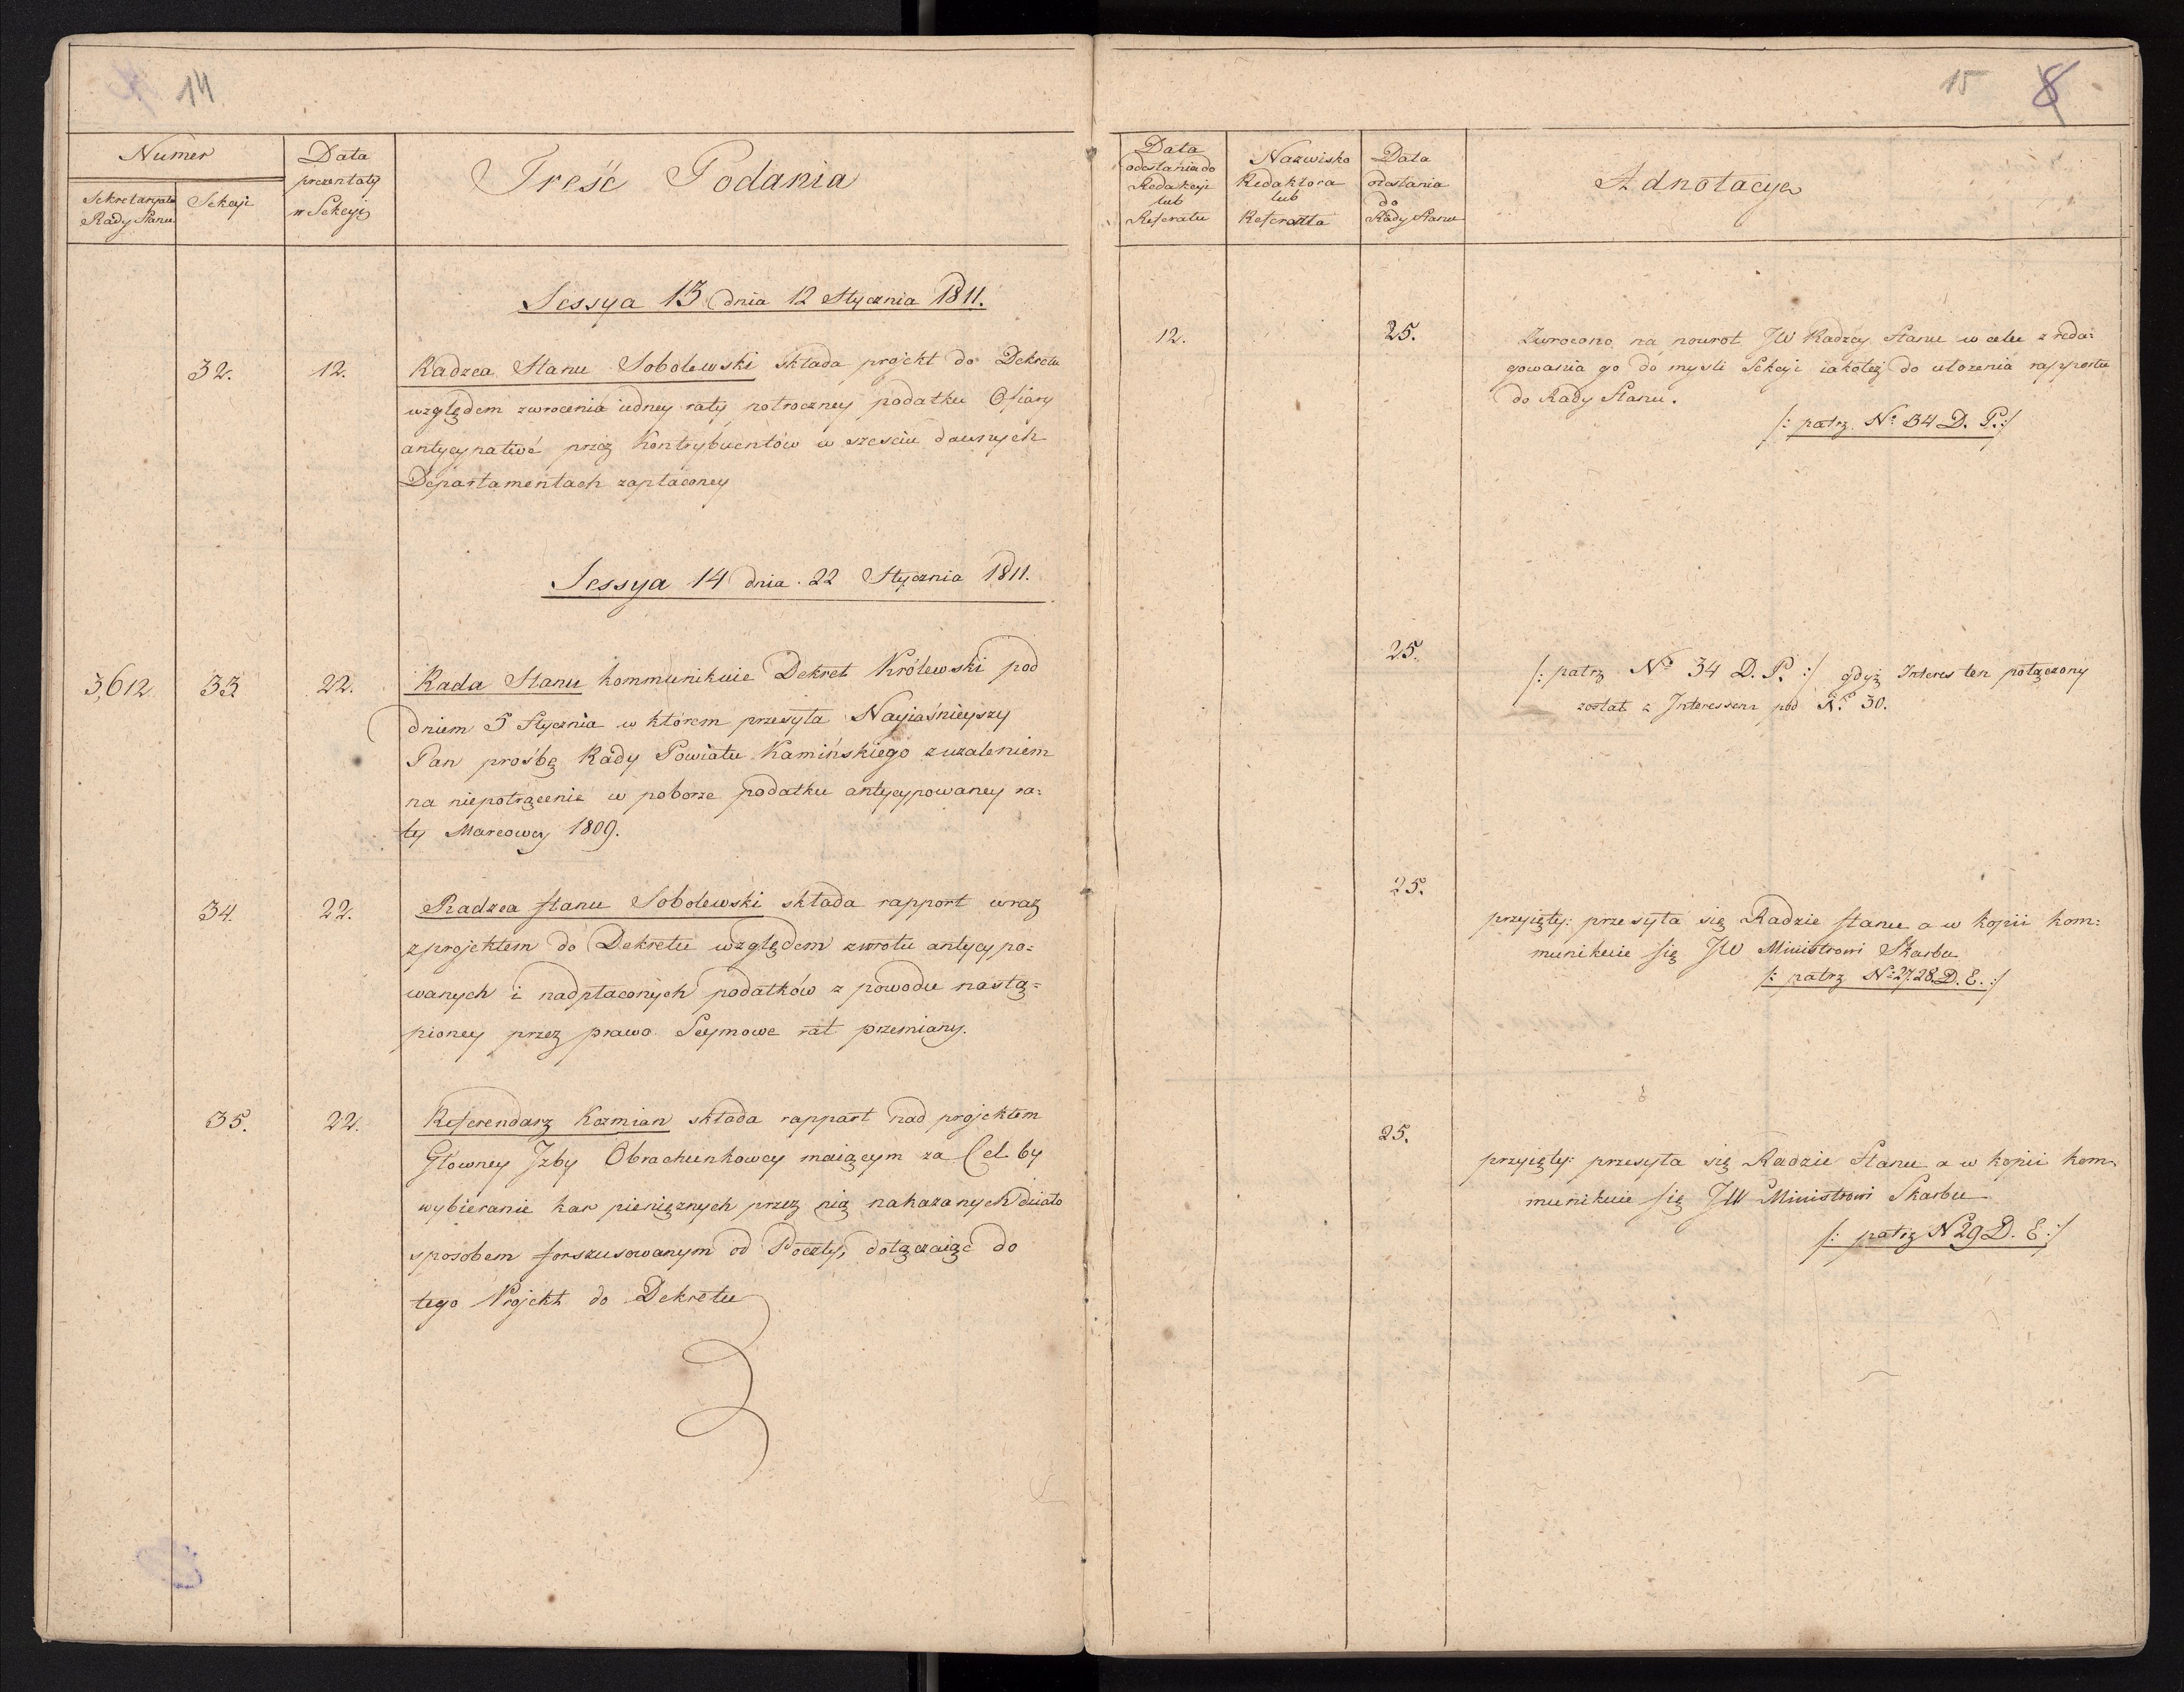 14
Numer
Data
prezentaty
w Sekcyi
Sekretaryatu
Rady Stanu
Sekcyi
Treść Podania
Sessya 13 dnia 12 Stycznia 1811.
32.
12.
Radzca Stanu Sobolewski składa projekt do Dekretu
względem zwrocenia iedney raty połroczney podatku Ofiary
antycypative przez Kontrybuentów w sześciu dawnych
Departamentach zapłaconey
Sessya 14 dnia 22 Stycznia 1811.
3,612.
33
22.
Rada Stanu kommunikuie Dekret Królewski pod
dniem 5 Stycznia w którem przesyła Nayiaśnieyszy
Pan prośbę Rady Powiatu Kamińskiego z użaleniem
na niepotrącenie w poborze podatku antycypowaney ra=
ty Marcowey 1809.
34.
22.
Radzca Stanu Sobolewski składa rapport wraz
z projektem do Dekretu względem zwrotu antycypo=
wanych i nadpłaconych podatków z powodu nastą=
pioney przez prawo Seymowe rat przemiany.
35.
22.
Referendarz Kozmian składa rapport nad projektem
Głowney Izby Obrachunkowey maiącym za Cel by
wybieranie kar pieniężnych przez nią nakazanych działo
sposobem forszusowanym od Poczty, dołączaiąc do
tego Projekt do Dekretu
15 8
Data
odesłania do
Redakcyi
lub
Referatu
Nazwisko
Redaktora
lub
Referenta
Data
odesłania
do
Rady Stanu
Adnotacya
12.
25.
Zwrocono na powrot JW Radzcy Stanu w celu zreda=
gowania go do mysli Sekcyi iakoteż do ułożenia rapportu
do Rady Stanu.
/: patrz Nº 34 D. P. :/
25.
/: patrz Nº 34 D. P. :/ gdyż Interes ten połączony
został z Interessem pod Nº 30.
25.
przyięty: przesyła się Radzie Stanu a w kopii kom=
munikuie się JW Ministrowi Skarbu
/: patrz Nº 27.28 D. E. :/
25.
przyięty: przesyła się Radzie Stanu a w kopii kom=
munikuie się JW Ministrowi Skarbu
/: patrz N 29 D. E :/